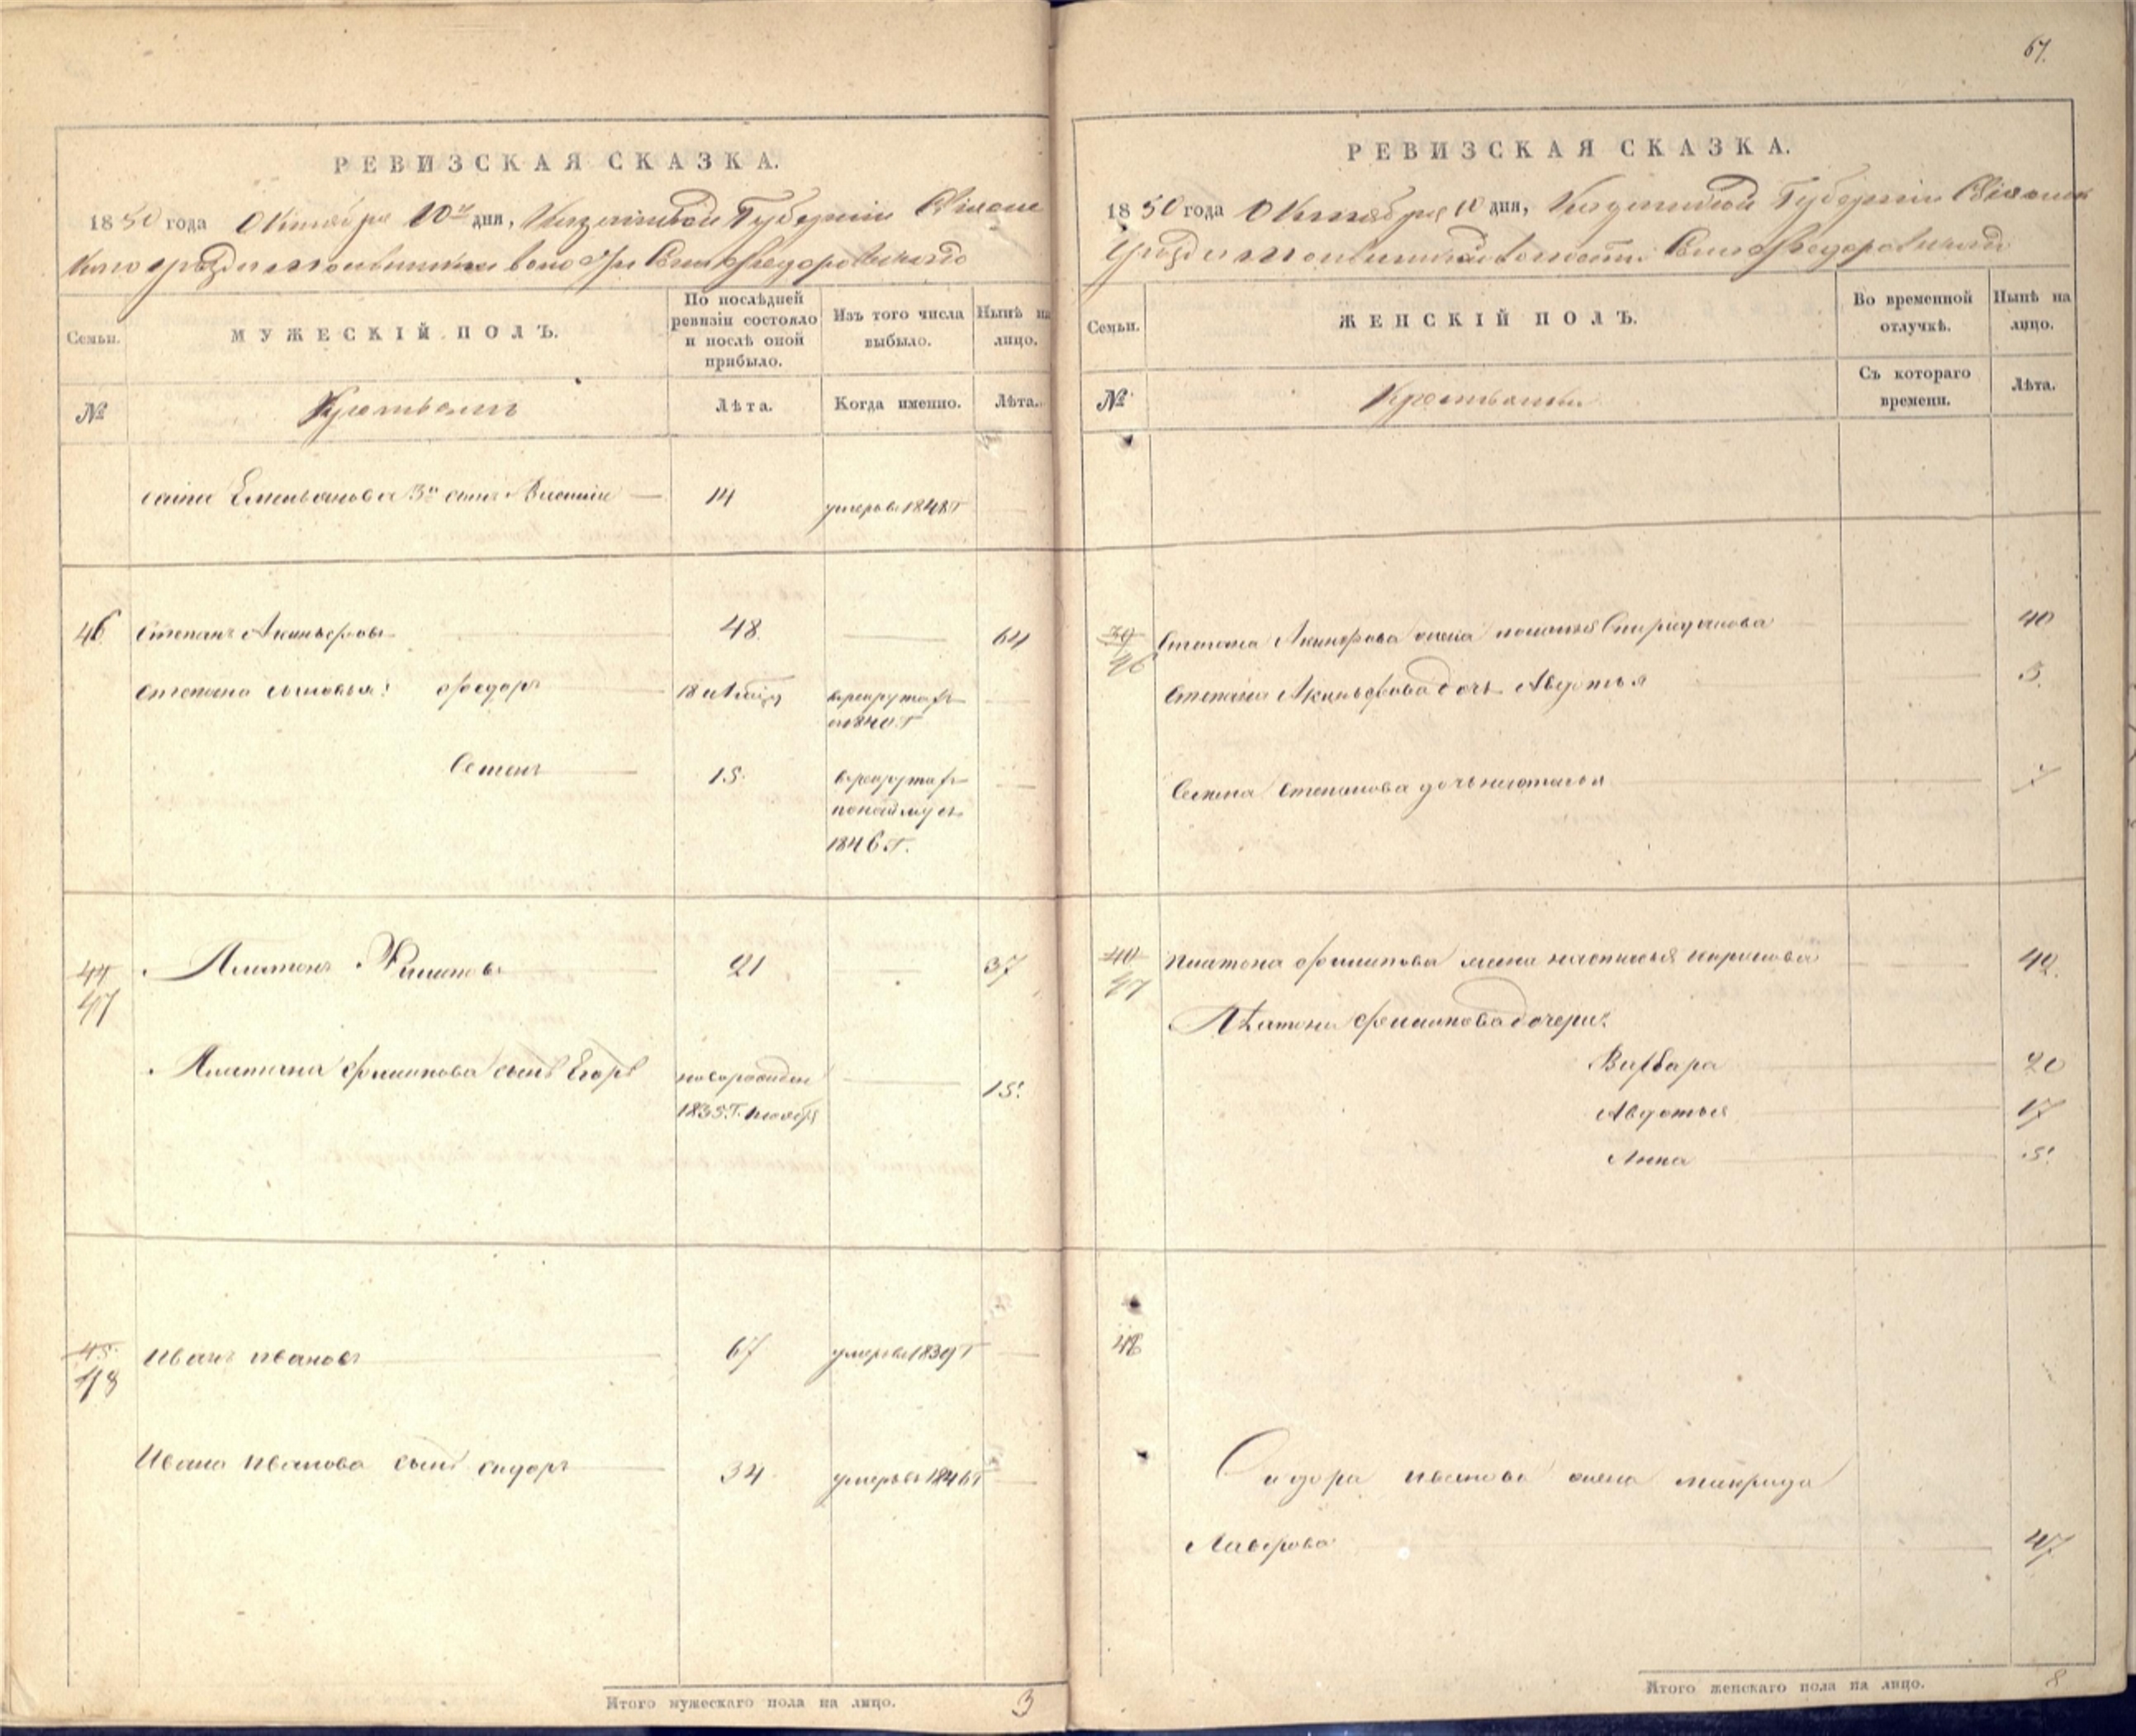 67.
РЕВИЗСКАЯ СКАЗКА.
1850 года Октября 10го дня, Казанской Губернии
уезда волости Села Федоровского
Семьи.
МУЖЕСКІЙ ПОЛЪ.
По послѣдней ревизіи состояло и послѣ оной прибыло.
Изъ того числа выбыло.
Нынѣ на лицо.
№
Крестьянъ
Лѣта.
Когда именно.
Лѣта.
Емельянова 3й сынъ 14 умеръ въ 184 Г
46 Степанъ Акинфеовъ 48. 64
Степана сыновья: Федоръ 18 в рекрутахъ
съ 1840 Г
Семенъ 15. в рекрутахъ
по найму съ
1846 Г.
44 Платонъ Филиповъ 21 37
47
Платона Филипова сынъ Егоръ новорожден 15.
1835 Г. ноябр
45. Иванъ Ивановъ 67 умеръ 1839 Г
48
Ивана Иванова сынъ Сидоръ 34 умеръ въ 1846 Г
Итого мужескаго пола на лицо. 3
РЕВИЗСКАЯ СКАЗКА.
1850 года Октября 10 дня, Казанской Губернии
Уезда волости Села Федоровского
Семьи.
ЖЕНСКІЙ ПОЛЪ.
Во временной отлучкѣ.
Нынѣ на лицо.
№
Крестьянки
Съ котораго времени.
Лѣта.
39 Степана Акинфова жена Спиридонова 40
46
Степана Акинфова дочь Авдотья 3.
Семена Степанова дочь Наталья
40 Платона Филипова жена Настасья 42.
47
Платона Филипова дочери:
Варвара 20
Авдотья 17
Анна 5.
48
Сидора Иванова жена Макрида
Лаврова 47
Итого женскаго пола на лицо. 8